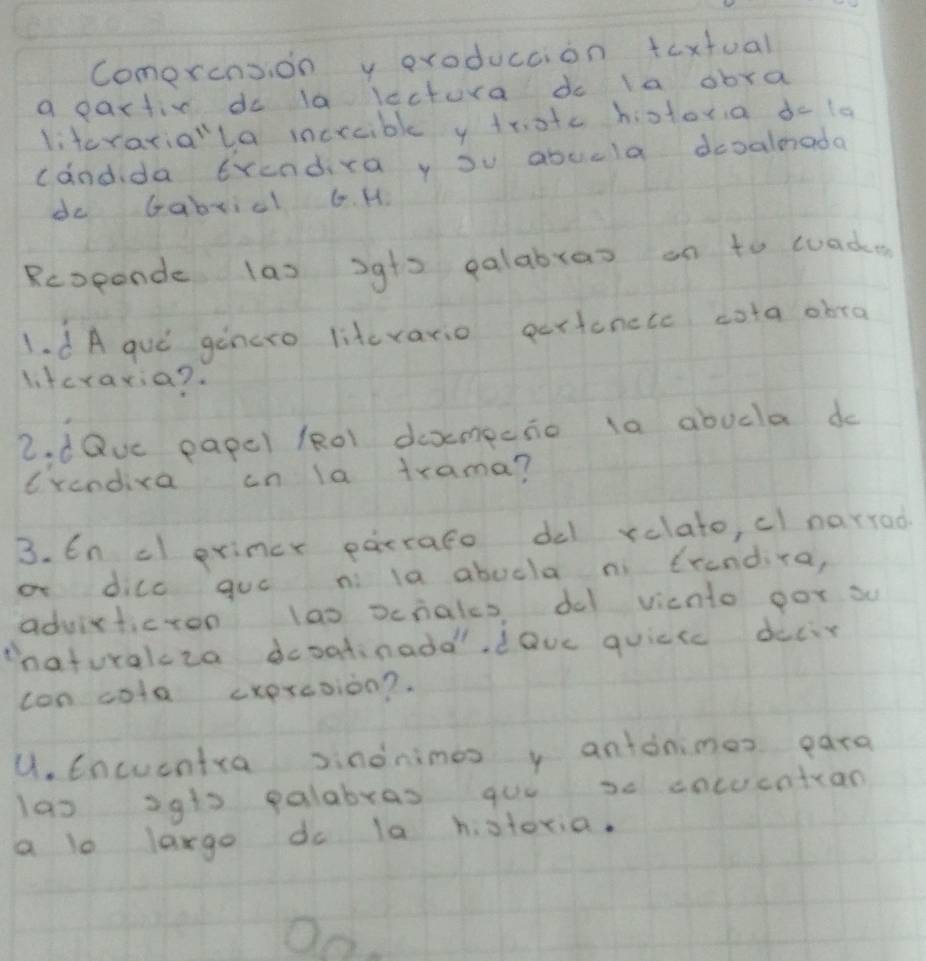 Comprensión y producción textual
a partir de la lectura de la obra
literaria "La increible y triste historia de la
cándida Eréndira y su abuela desalmada
de Gabriel G.M.
Responde las sgts palabras en tu cuader
1. ¿A qué género literario pertenece esta obra
literaria?.
2. ¿Que papel /Rol desempeño la abuela de
Erendira en la trama?
3. En el primer párrafo del relato, el narrad
or dice que ni la abuela ni Erendira,
advirtieron las señales del viento por su
"naturaleza desatinada". ¿Que quiere decir
con esta expresión?.
4. Encuentra sinónimos y antónimos para
las sgts palabras que se encuentran
a lo largo de la historia.